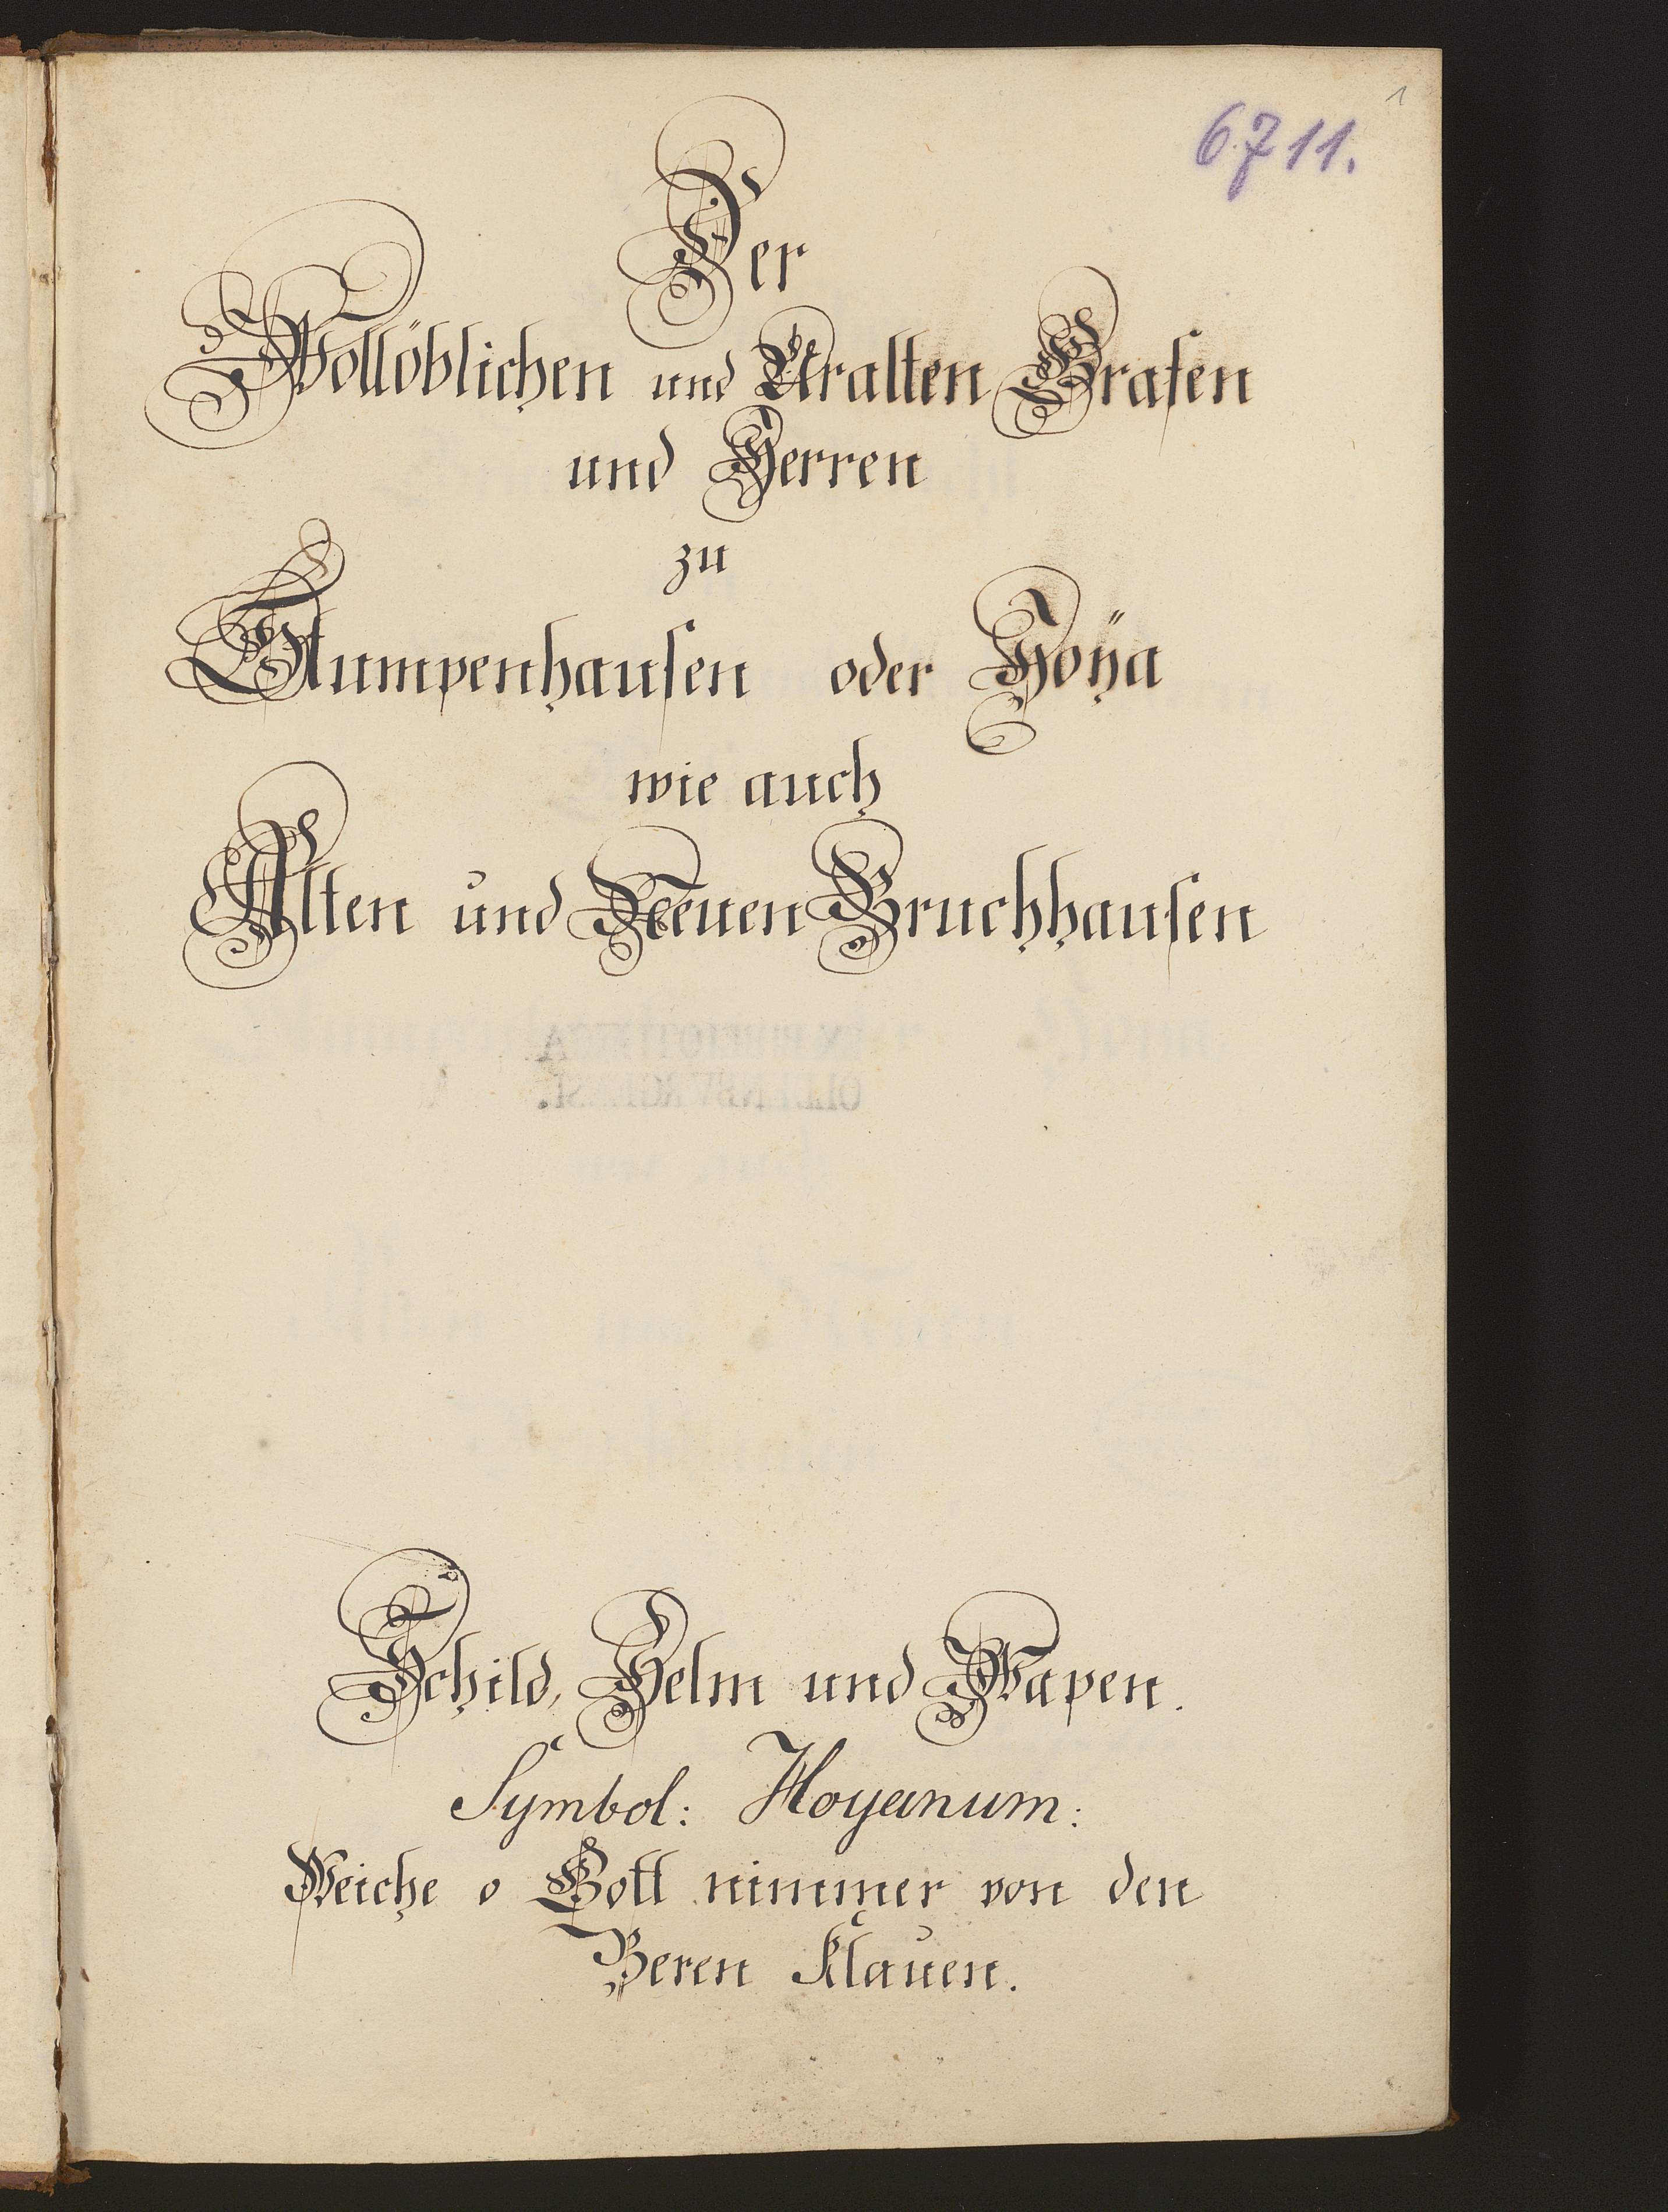 1
6711.
Der
Wollöblichen und Uralten Grafen
und Herren
zu
Stumpenhausen oder Höÿa
wie auch
Alten und Neuen Bruchhausen
Schild, Helm und Wapen.
Symbol: Hoyanum:
Weiche o Gott nimmer von den
Beren Klauen.